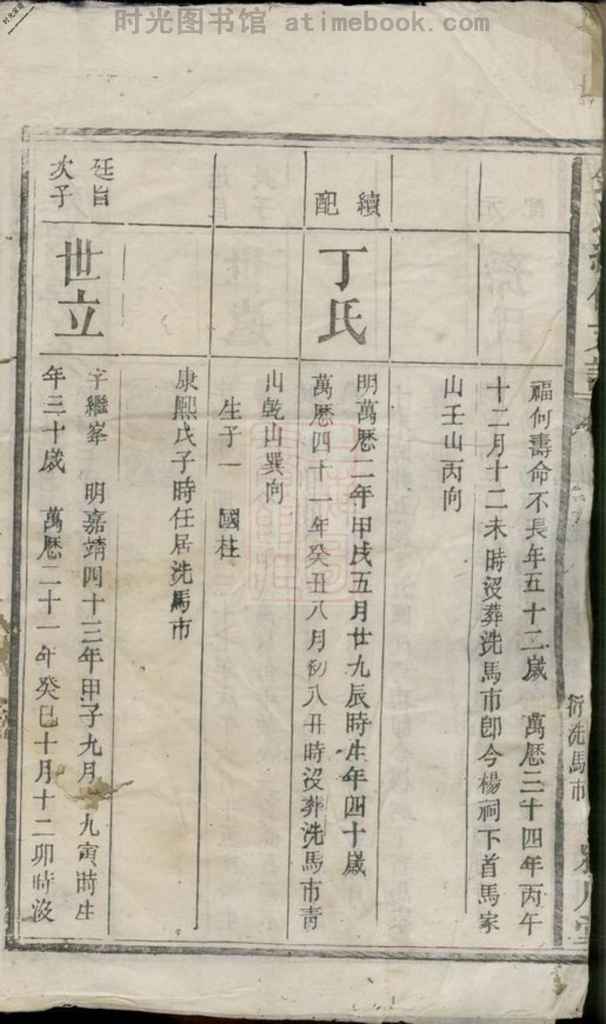 时光图书馆 atimebook.com
福何壽命不長年五十二歲 萬厯三十四年丙午
十二月十二未時沒葬洗馬市卽今楊祠下首馬家
山壬山丙向
續配
丁氏
明萬厯二年甲戌五月廿九辰時生年四十歲
萬厯四十一年癸丑八月初八丑時沒葬洗馬市青
山乾山巽向
生子一 國柱
康熙戊子時任居洗馬市
廷旨次子
世立
字繼峯 明嘉靖四十三年甲子九月 九寅時生
年三十歲 萬厯二十一年癸巳十月十二卯時沒
衍洗馬市